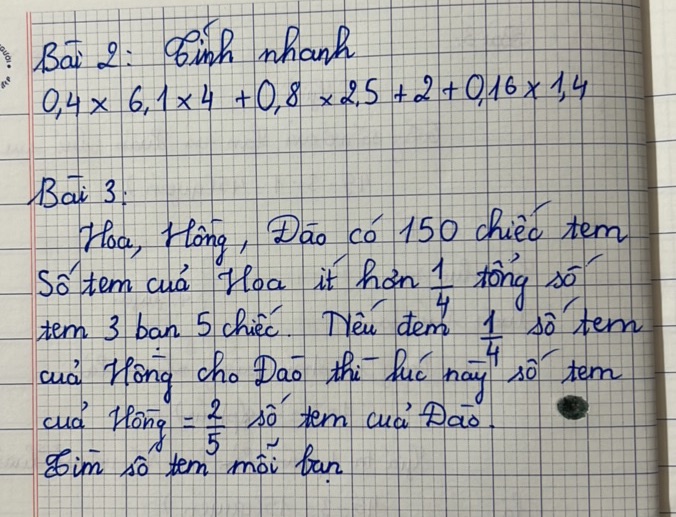 Bài 2: Tính nhanh
0,4 × 6,1 × 4 + 0,8 × 2,5 + 2 + 0,16 × 1,4
Bài 3:
Hoa, Hồng, Đào có 150 chiếc tem
Số tem của Hoa ít hơn 1/4 tổng số
tem 3 bạn 5 chiếc. Nếu đem 1/4 số tem
của Hồng cho Đào thì lúc này số tem
của Hồng = 2/5 số tem của Đào.
Tìm số tem mỗi bạn